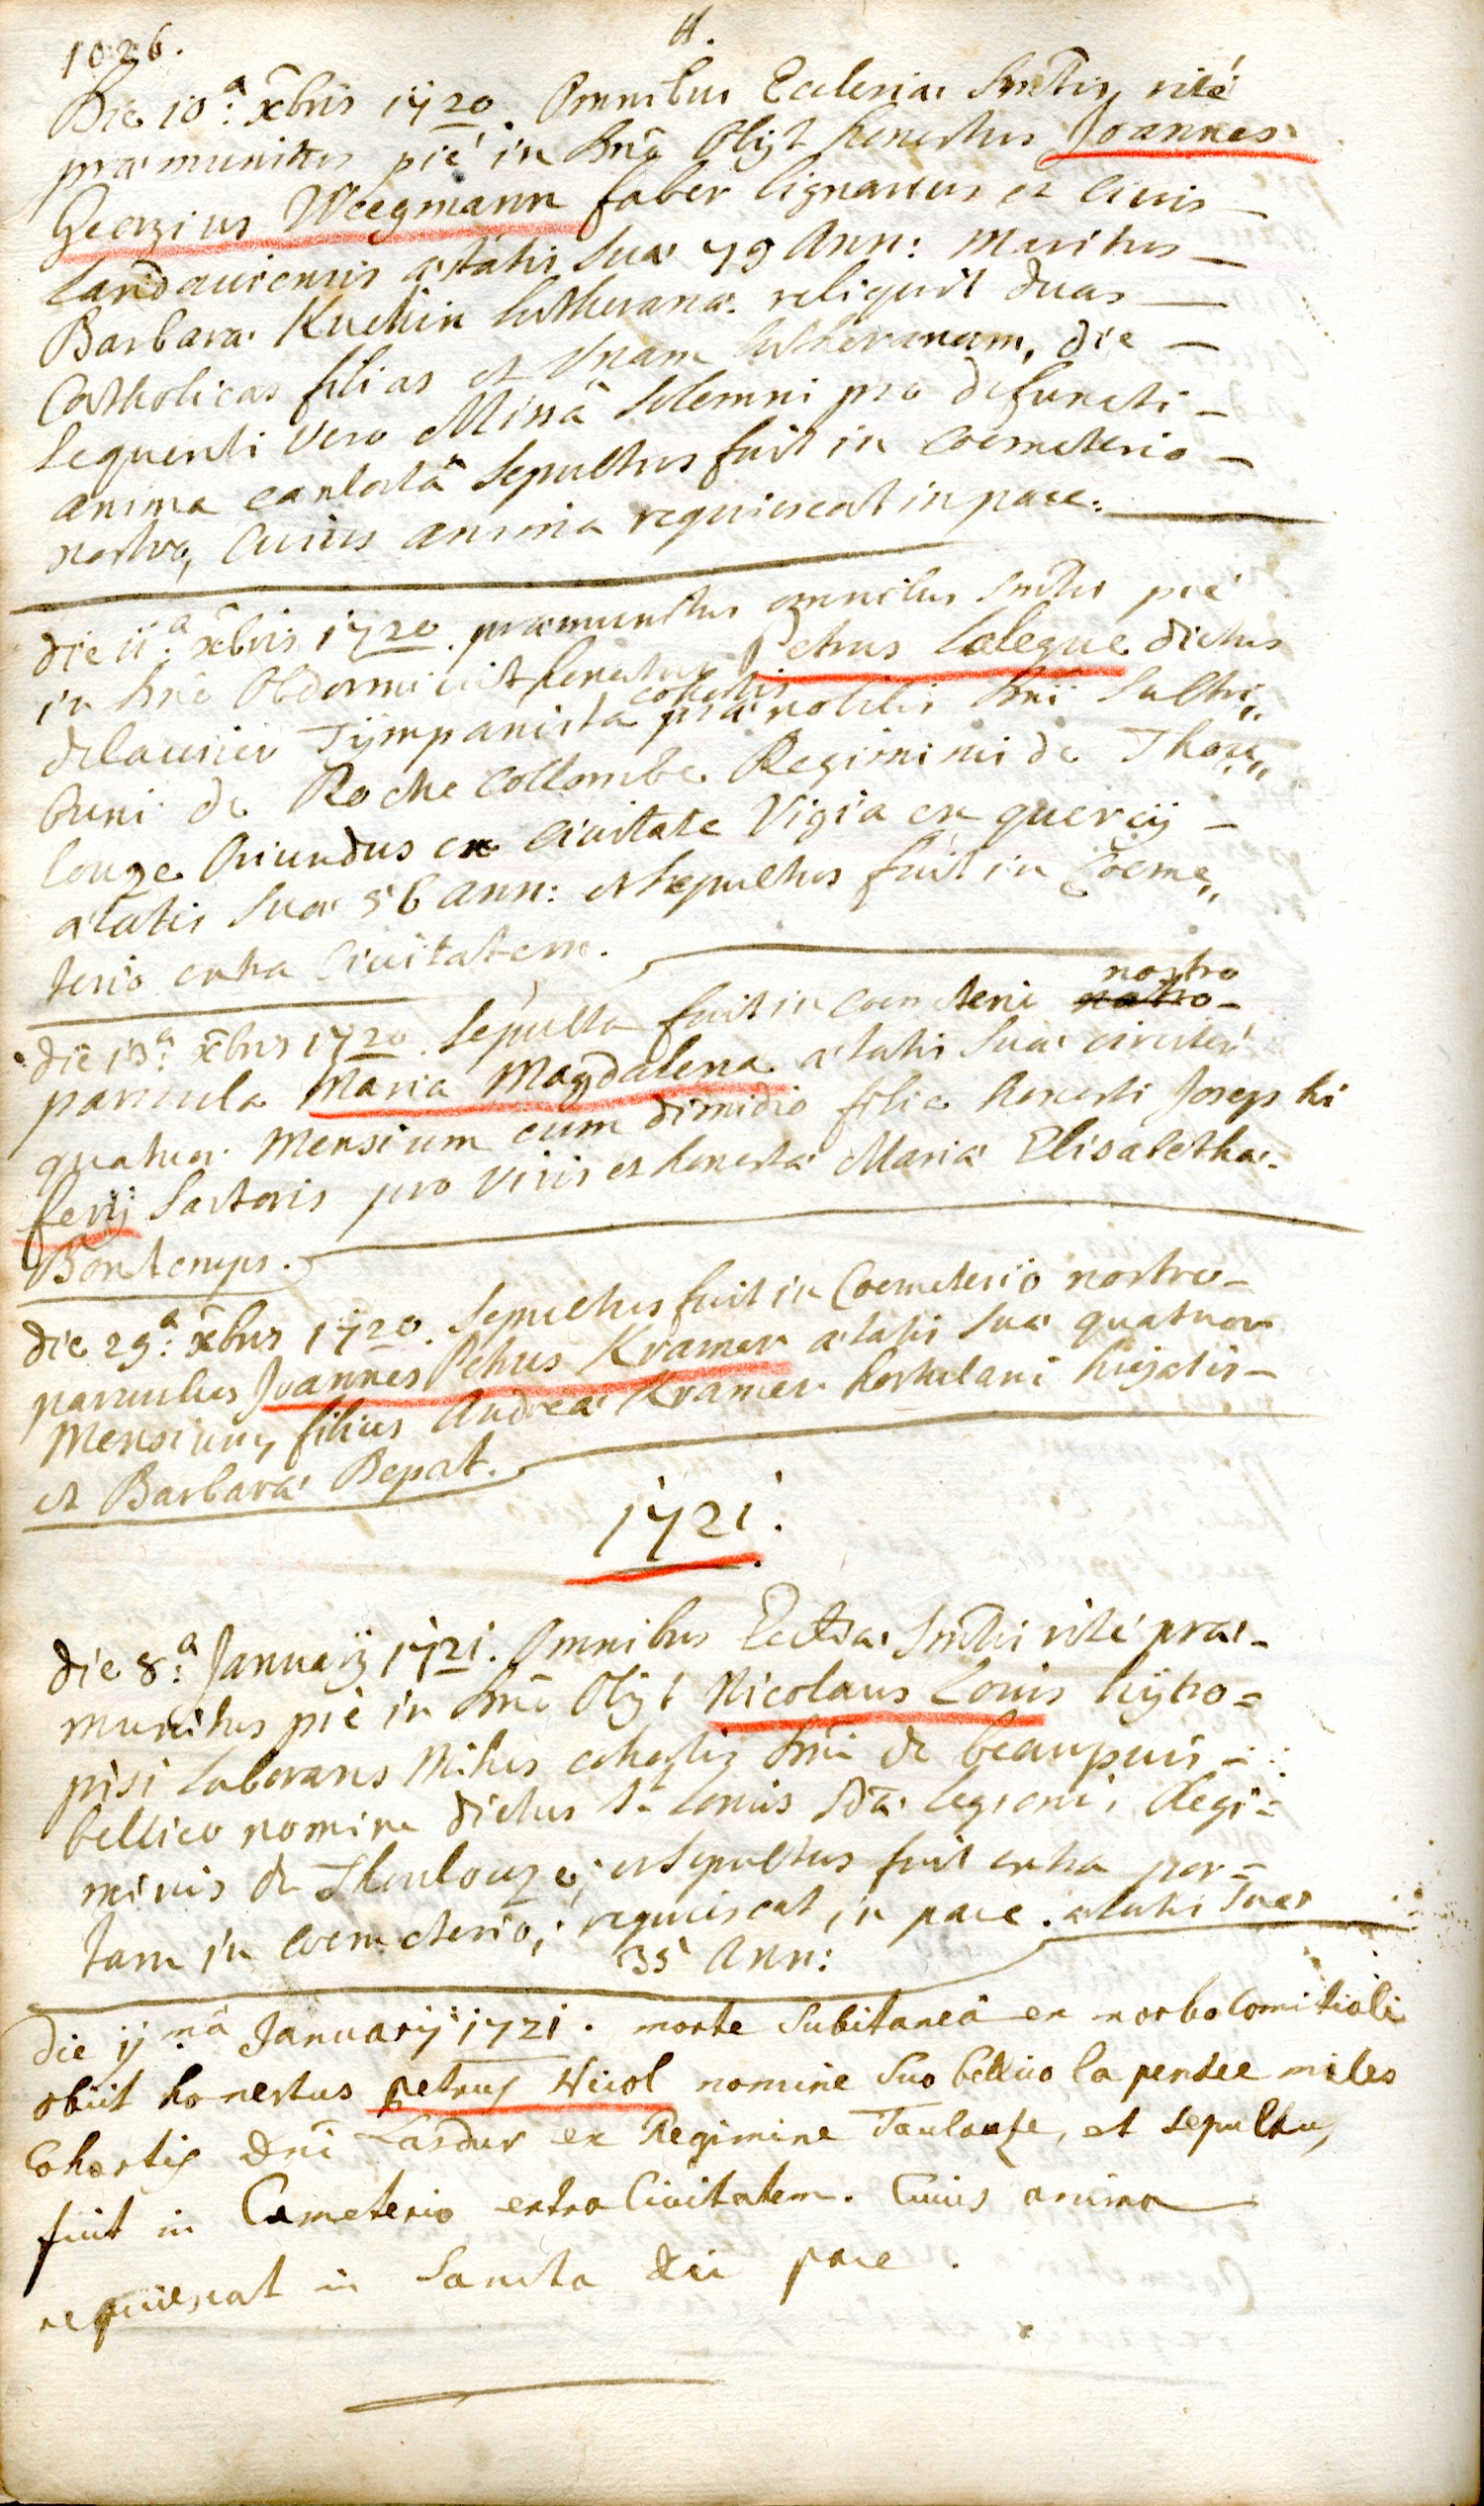 1026.
Die 10:ª xbris 1720. Omnibus Ecclesiæ Smtis rité
præmunitus pié in Dno Obyt honestus Joannes
Georgius Weegmann faber lignarius et civis
Landauiensis ætatis suæ 79 Ann: maritus
Barbaræ Kuchin lutheranæ. reliquit duas
Catholicas filias et Unam lutheranam, die
sequenti vero Missâ solemni pro defuncti
anima cantatâ sepultus fuit in coemeterio
nostro, Cuius anima requiescat in pace.
die 11:ª xbris 1720. præmunitus omnibus Smtis pié
in Dno Obdormiuit honestus Petrus Lalegue dictus
delaurier Tÿmpanista cohortis prænobilis Dni Saltri„
buni de Roche Collombe Regiminis de Thou„
louze Oriundus ex ciuitate Vigia en quercÿ
ætatis suæ 56 ann: et sepultus fuit in Coeme„
terio extra Ciuitatem.
die 13:ª xbris 1720. sepulta fuit in coemeterio nostro
paruula Maria Magdalena ætatis suæ circiter
quatuor mensium cum dimidio filia honesti Josephi
ferÿ Sartoris pro Viris et honestæ Mariæ Elisabethæ
Bontemps.
die 29:ª xbris 1720. sepultus fuit in Coemeterio nostro
paruulus Joannes Petrus Kramer ætatis suæ quatuor
Mensium, filius Andreæ Kramer hortulani hujatis
et Barbaræ Bepat.
1721.
die 8:ª Januarÿ 1721. Omnibus Ecclsiæ Smtis rité præ-
munitus pié in Dno Obyt Nicolaus Louis hÿtro=
pisi laborans Miles cohortis Dni de beaupuis
bellico nomine dictus St Louis Sdæ legionis Regi=
minis de Thoulouze, et sepultus fuit extra por=
tam in coemeterio; requiescat in pace. ætatis suæ
35 Ann:
Die 11 mâ Januarÿ 1721. morte subitaneâ ex morbo comitiali
obiit honestus petrus Nicol nomine suo bellico la pensée miles
Cohortis Dni Lasdur ex Regimine Taulouse, et sepultus
fuit in Cæmeterio extra Ciuitatem. Cuius anima
requiescat in Sancta Dei pace.